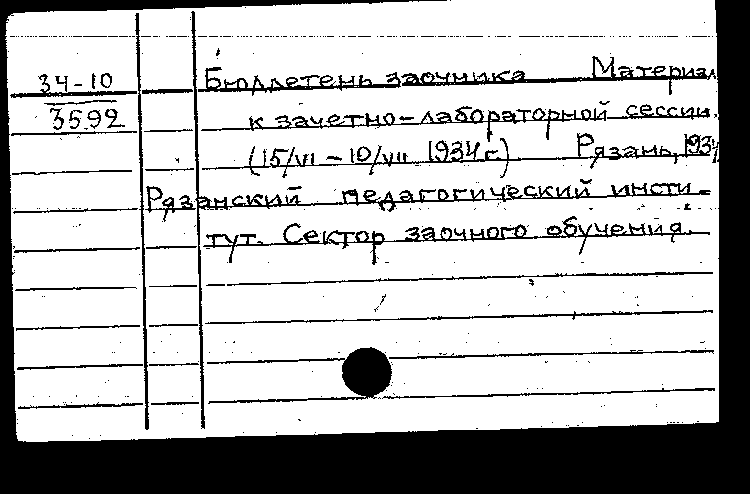 34-10
3592
Бюллетень заочника Материал
к зачетно-лабораторной сессии.
(15/VI – 10/VII 1934 г.) Рязань, 1934
Рязанский педагогический инсти-
тут. Сектор заочного обучения.